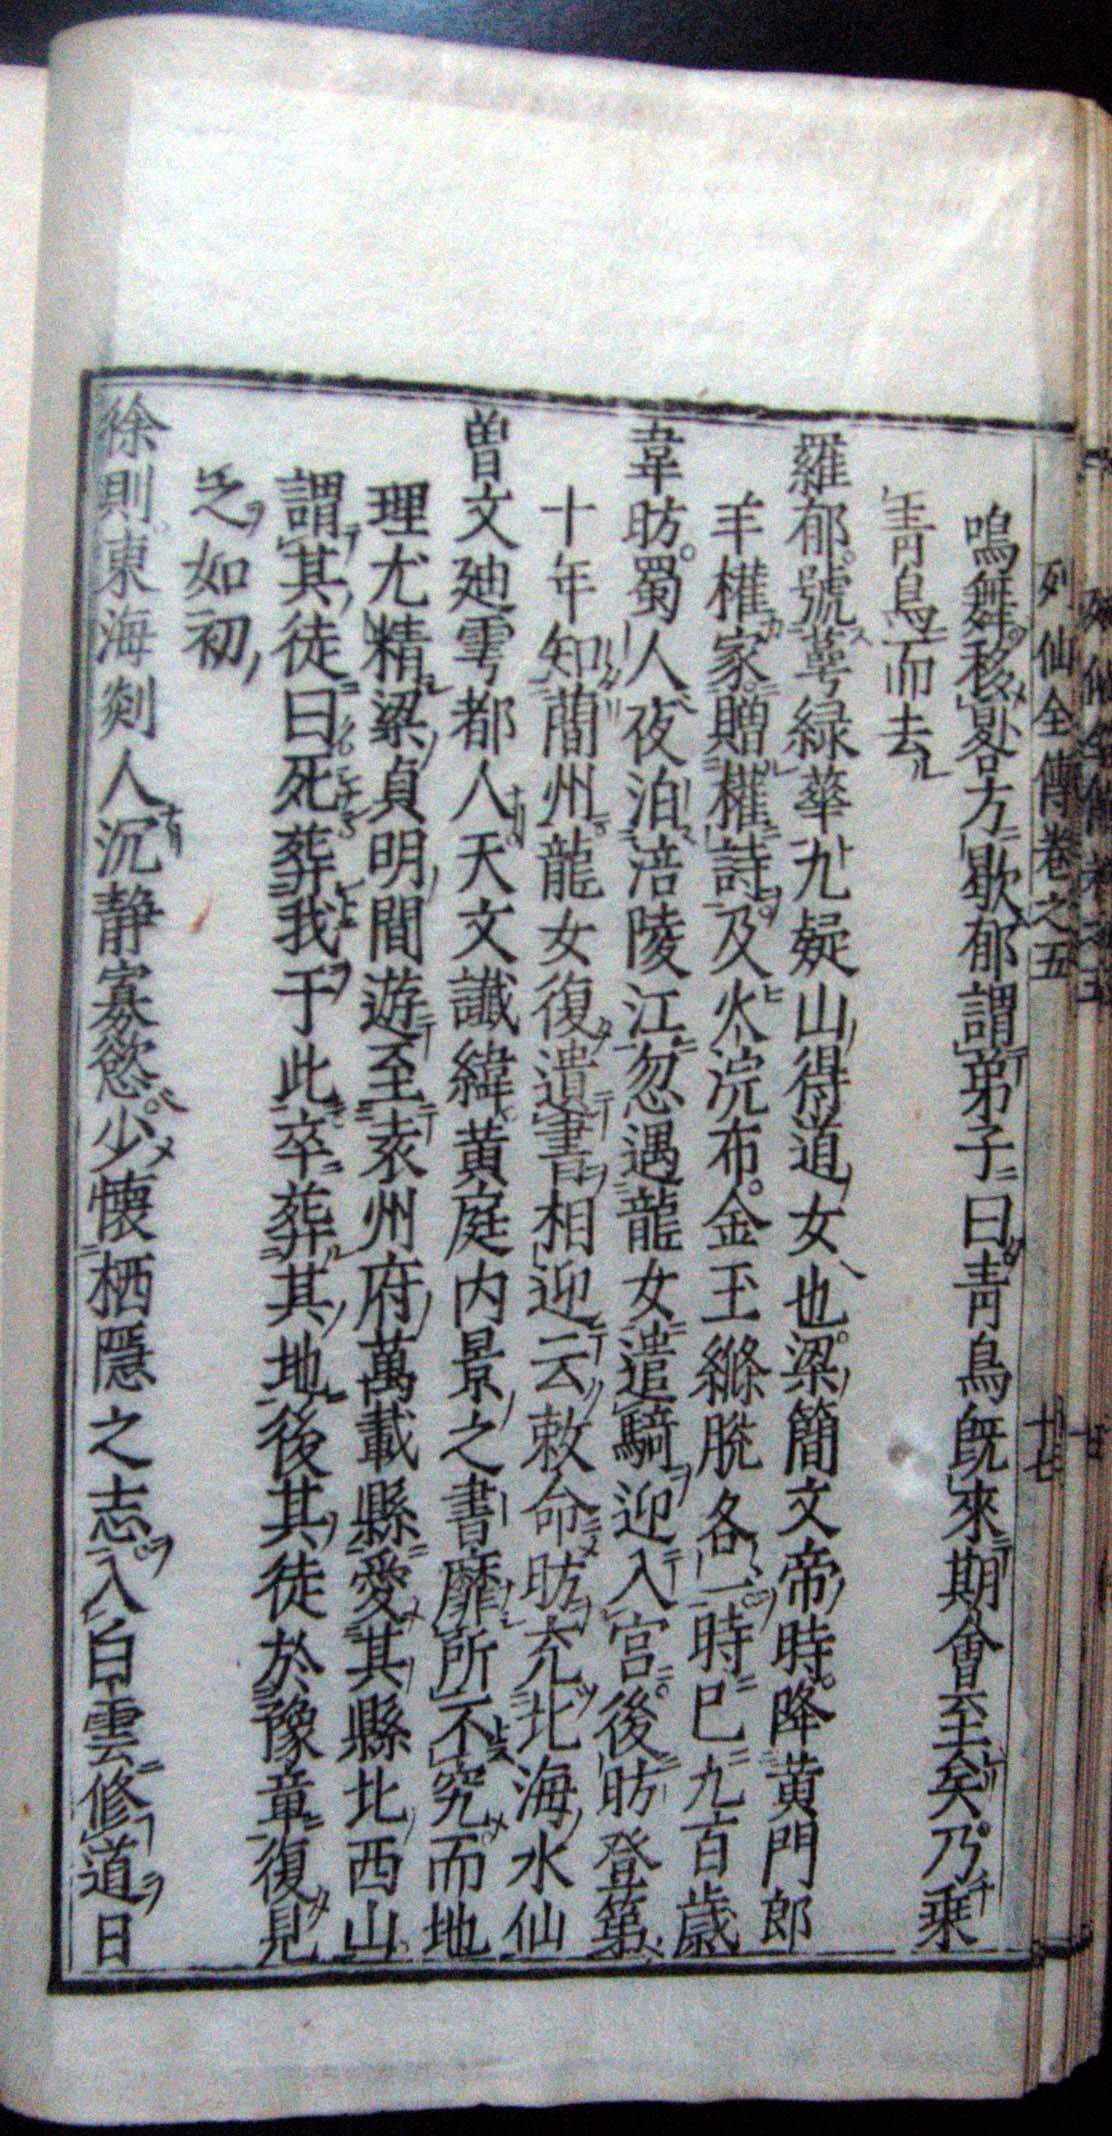 列仙全傳卷之五 十七
鳴舞移晷方歇郁謂弟子曰青鳥既來期會至矣乃乘
青鳥而去
羅郁號萼綠華九疑山得道女也梁簡文帝時降黃門郎
羊權家贈權詩及火浣布金玉縧脫各一時已九百歲
韋昉蜀人夜泊涪陵江忽遇龍女遣騎迎入宮後昉登第
十年知蕳州龍女復遺書相迎云敕命昉充北海水仙
曾文迪雩都人天文讖緯黃庭內景之書靡所不究而地
理尤精梁貞明間遊至袁州府萬載縣愛其縣北西山
謂其徒曰死葬我于此卒葬其地後其徒於豫章復見
之如初
徐則東海剡人沉靜寡慾少懷栖隱之志入白雲修道日